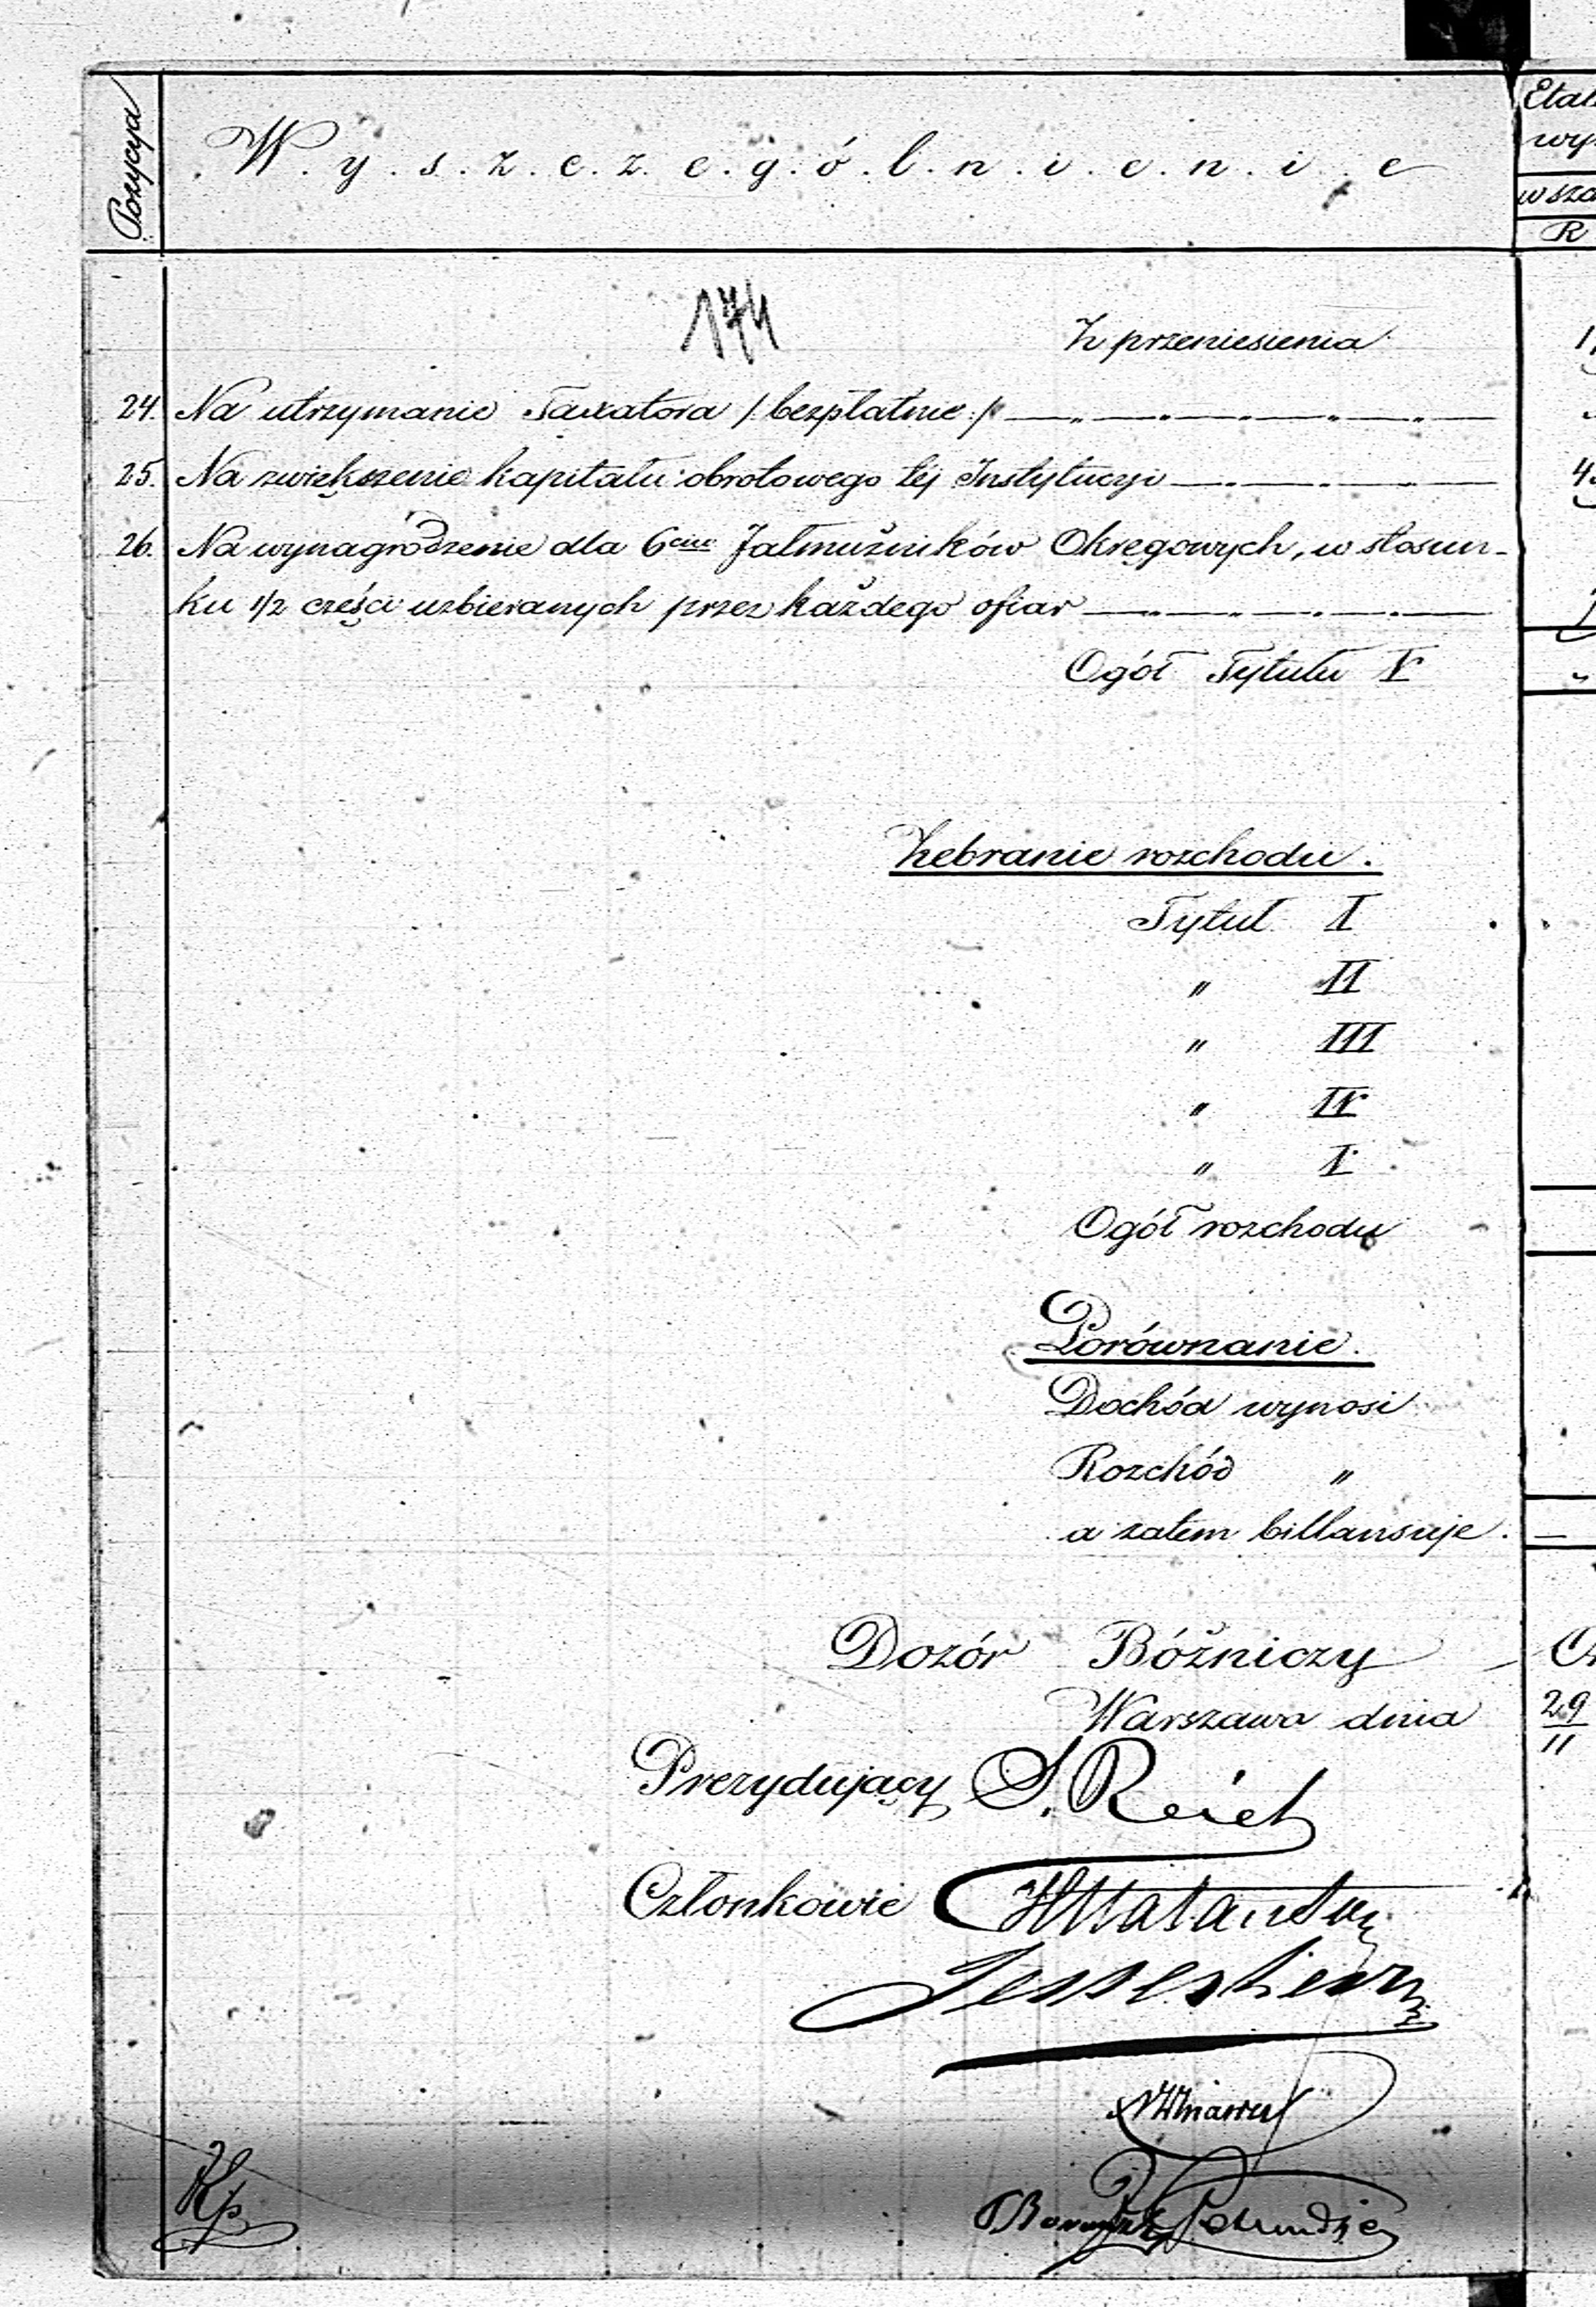 Pozycya
W.y.s.z.c.z.e.g.ó.l.n.i.e.n.i.e
Etat
wy
w sza
R
174
Z przeniesienia
24. Na utrzymanie Taxatora /: bezpłatnie :/ — „ — „ — „ — „ — „ —
25. Na zwiększenie kapitału obrotowego téj Instytucyi — „ — „ — „ —
26. Na wynagrodzenie dla 6ciu Jałmużników Okręgowych, w stosun-
ku 1/2 części uzbieranych przez każdego ofiar — „ — „ — „ — „ —
Ogół Tytułu V
Zebranie rozchodu.
Tytuł I
„ II
„ III
„ IV
„ V
Ogół rozchodu
Porównanie.
Dochód wynosi
Rozchód „
a zatem billansuje.
Dozór Bóżniczy
Warszawa dnia 29
11
Prezydujący S. Reich
Członkowie